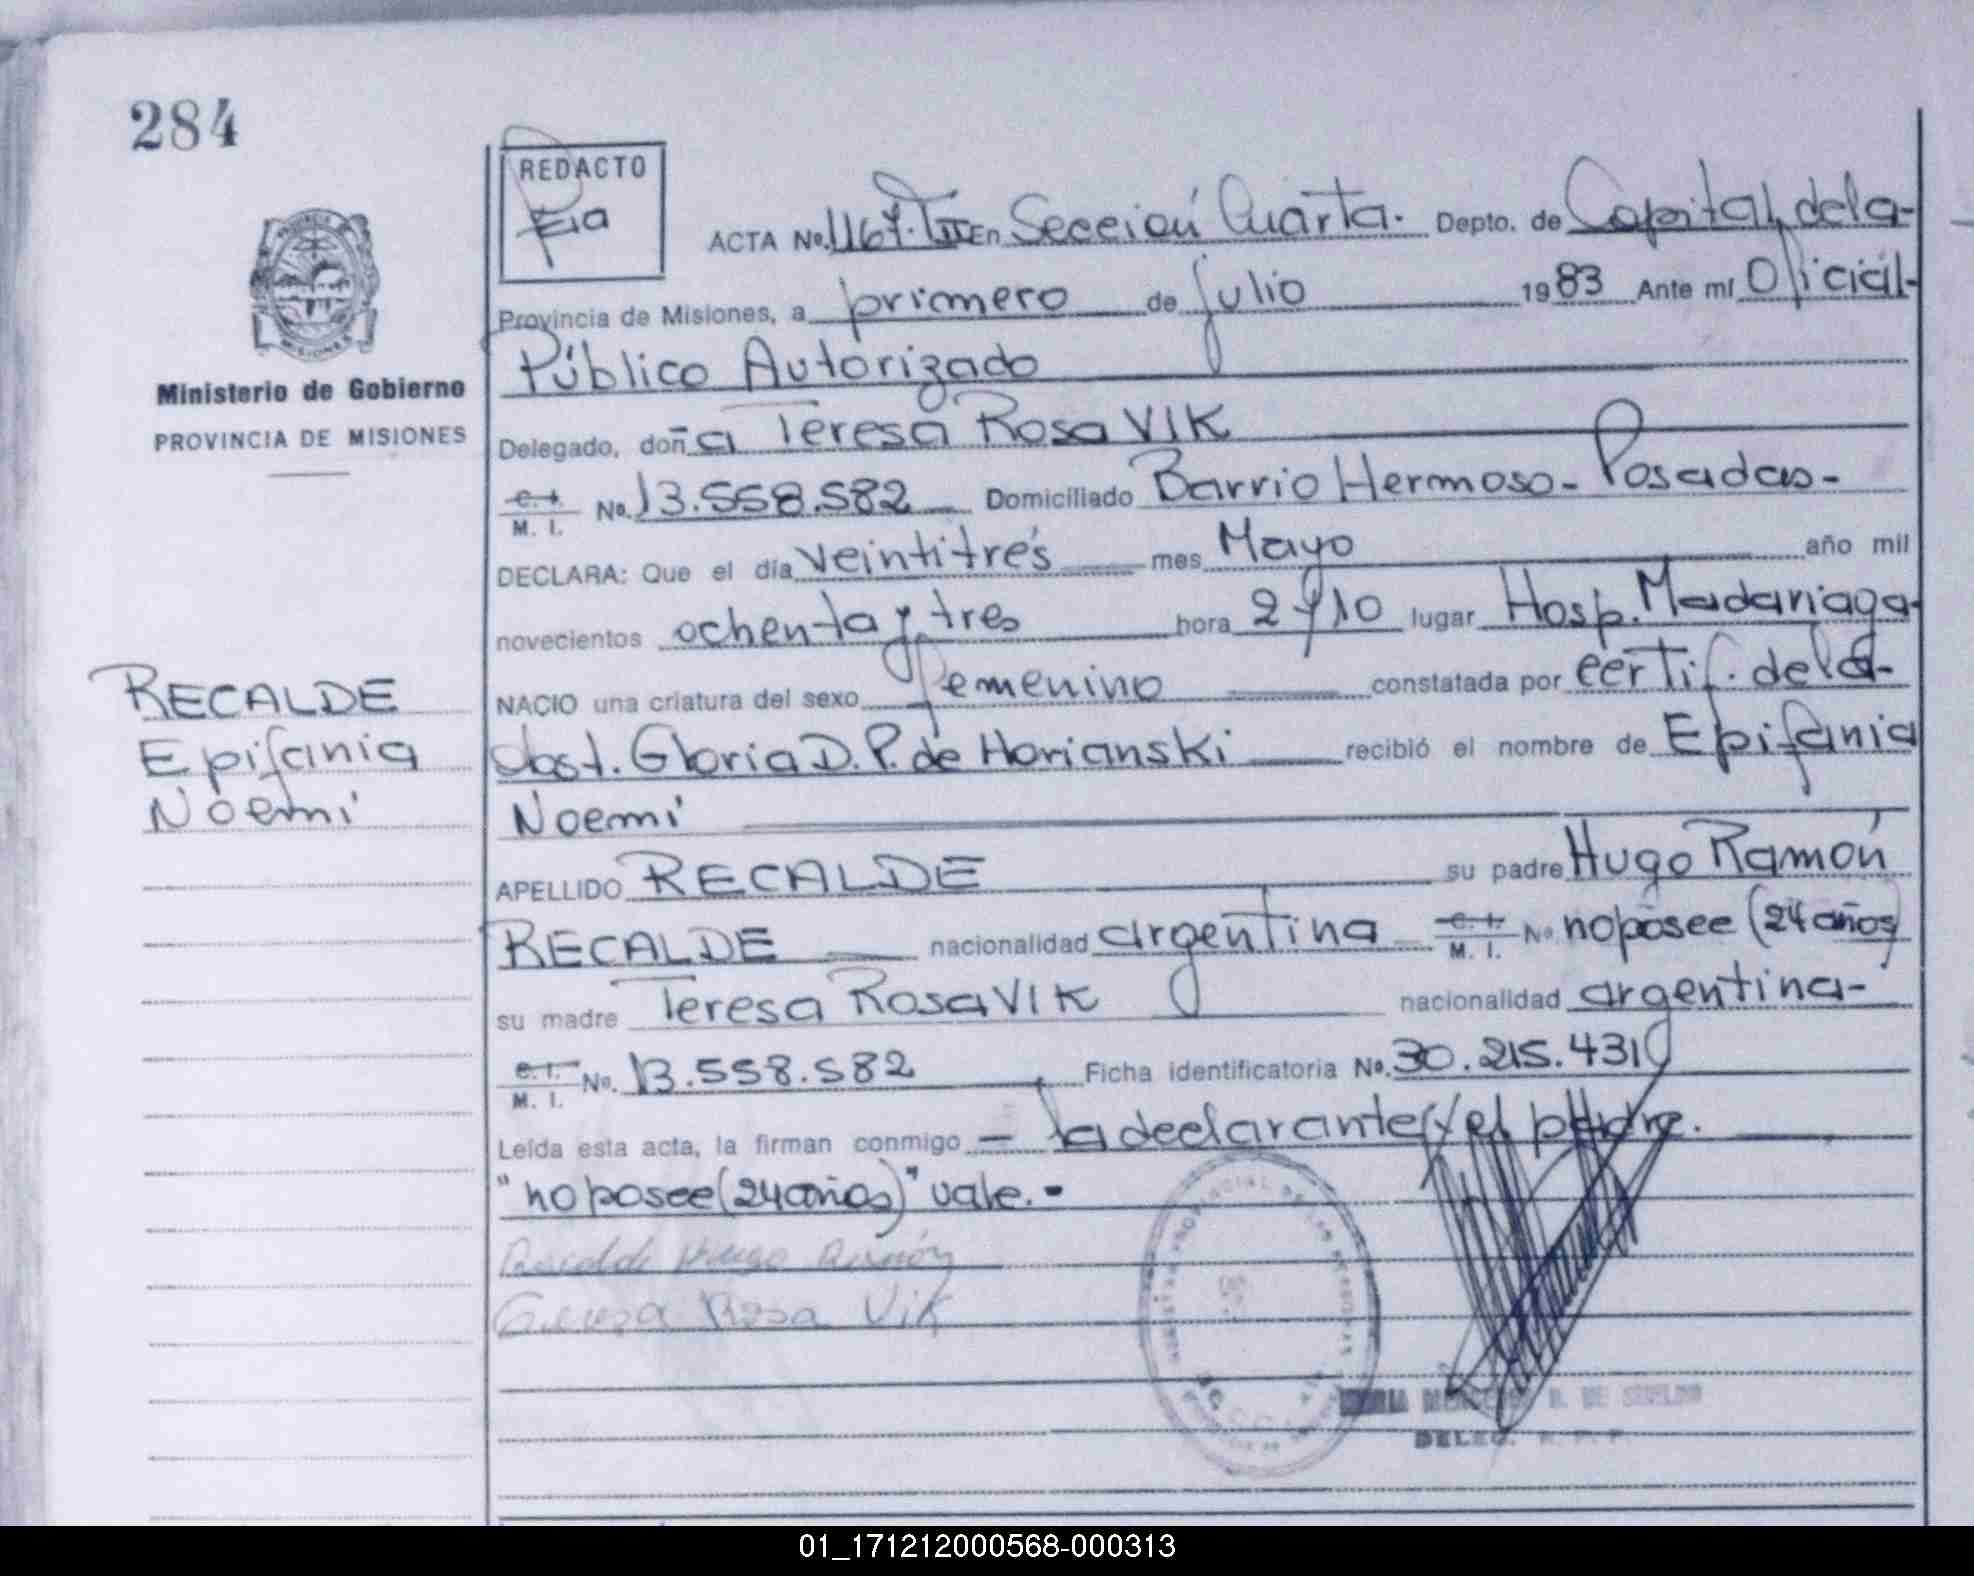 284
REDACTO
Eia
ACTA No. 1167. T II En Sección Cuarta. Depto. de Capital, de la-
Provincia de Misiones, a primero de julio 1983 Ante mí Oficial-
Público Autorizado
Ministerio de Gobierno
PROVINCIA DE MISIONES
Delegado, doña Teresa Rosa VIK
C. I. M. I. No. 13.558.582 Domiciliado Barrio Hermoso- Posadas-
DECLARA: Que el día veintitrés mes Mayo año mil
novecientos ochenta y tres hora 2 y 10 lugar Hosp. Madariaga-
NACIO una criatura del sexo femenino constatada por certif. de la-
obst. Gloria D. P. de Horianski recibió el nombre de Epifania
Noemí
RECALDE
Epifania
Noemí
APELLIDO RECALDE su padre Hugo Ramón
RECALDE nacionalidad argentina C. I. M. I. No. no posee (24 años)
su madre Teresa Rosa VIK nacionalidad argentina-
C. I. M. I. No. 13.558.582 Ficha identificatoria No. 30.215.431
Leída esta acta, la firman conmigo — la declarante y el padre.
"no posee (24 años)" vale.-
Recalde Hugo Ramón
Teresa Rosa Vik
DELEG. R. P. P.
01_171212000568-000313